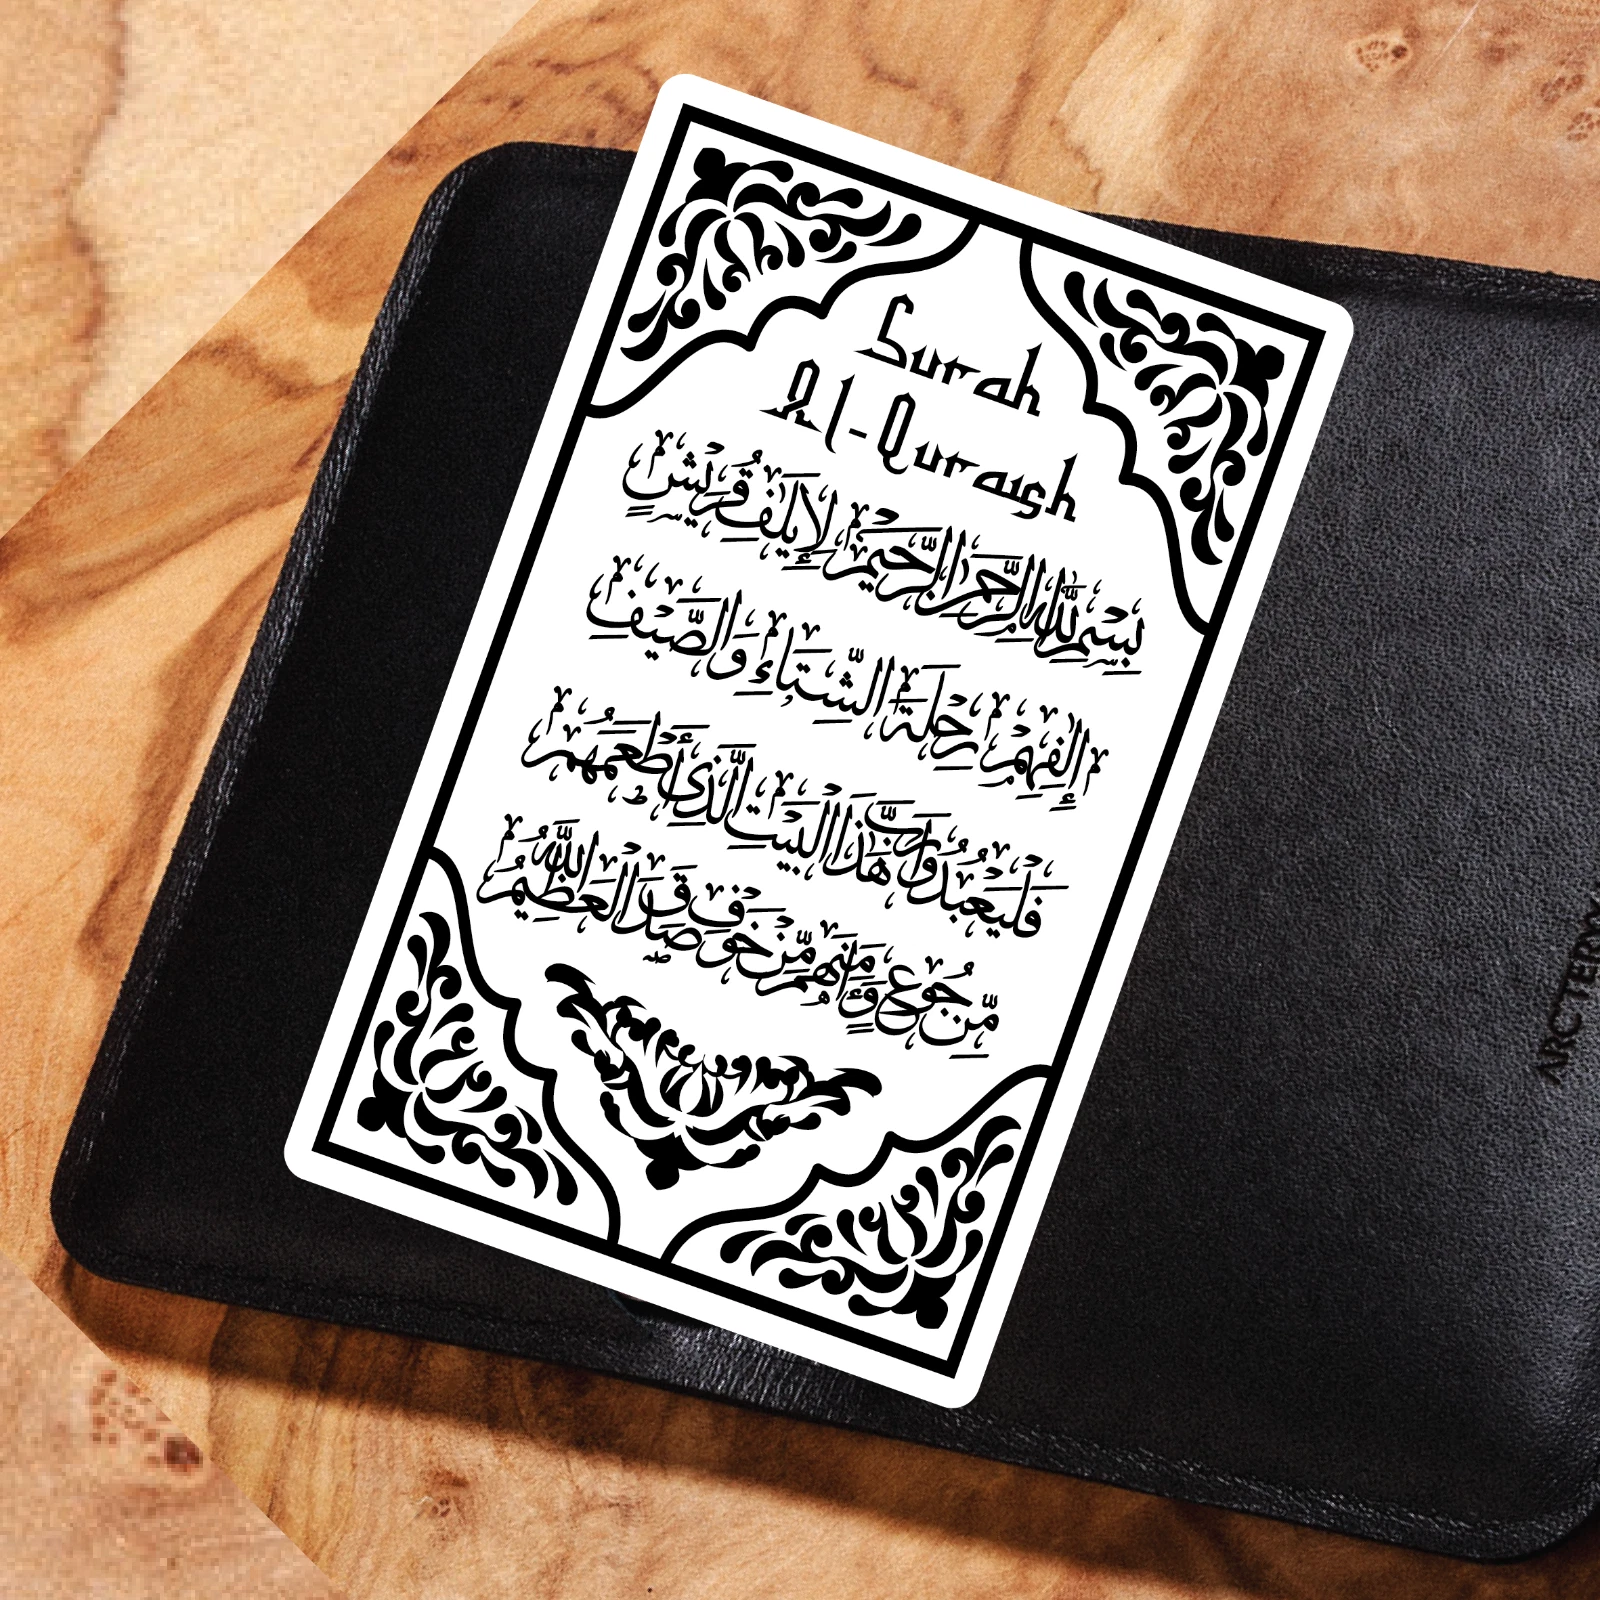 Surah
Al-Quraish
بِسْمِ اللَّهِ الرَّحْمَٰنِ الرَّحِيمِ لِإِيلَٰفِ قُرَيْشٍ
إِلَٰفِهِمْ رِحْلَةَ الشِّتَاءِ وَالصَّيْفِ
فَلْيَعْبُدُوا رَبَّ هَٰذَا الْبَيْتِ الَّذِي أَطْعَمَهُم
مِّن جُوعٍ وَءَامَنَهُم مِّنْ خَوْفٍ صَدَقَ اللَّهُ الْعَظِيمُ
ARCTERY